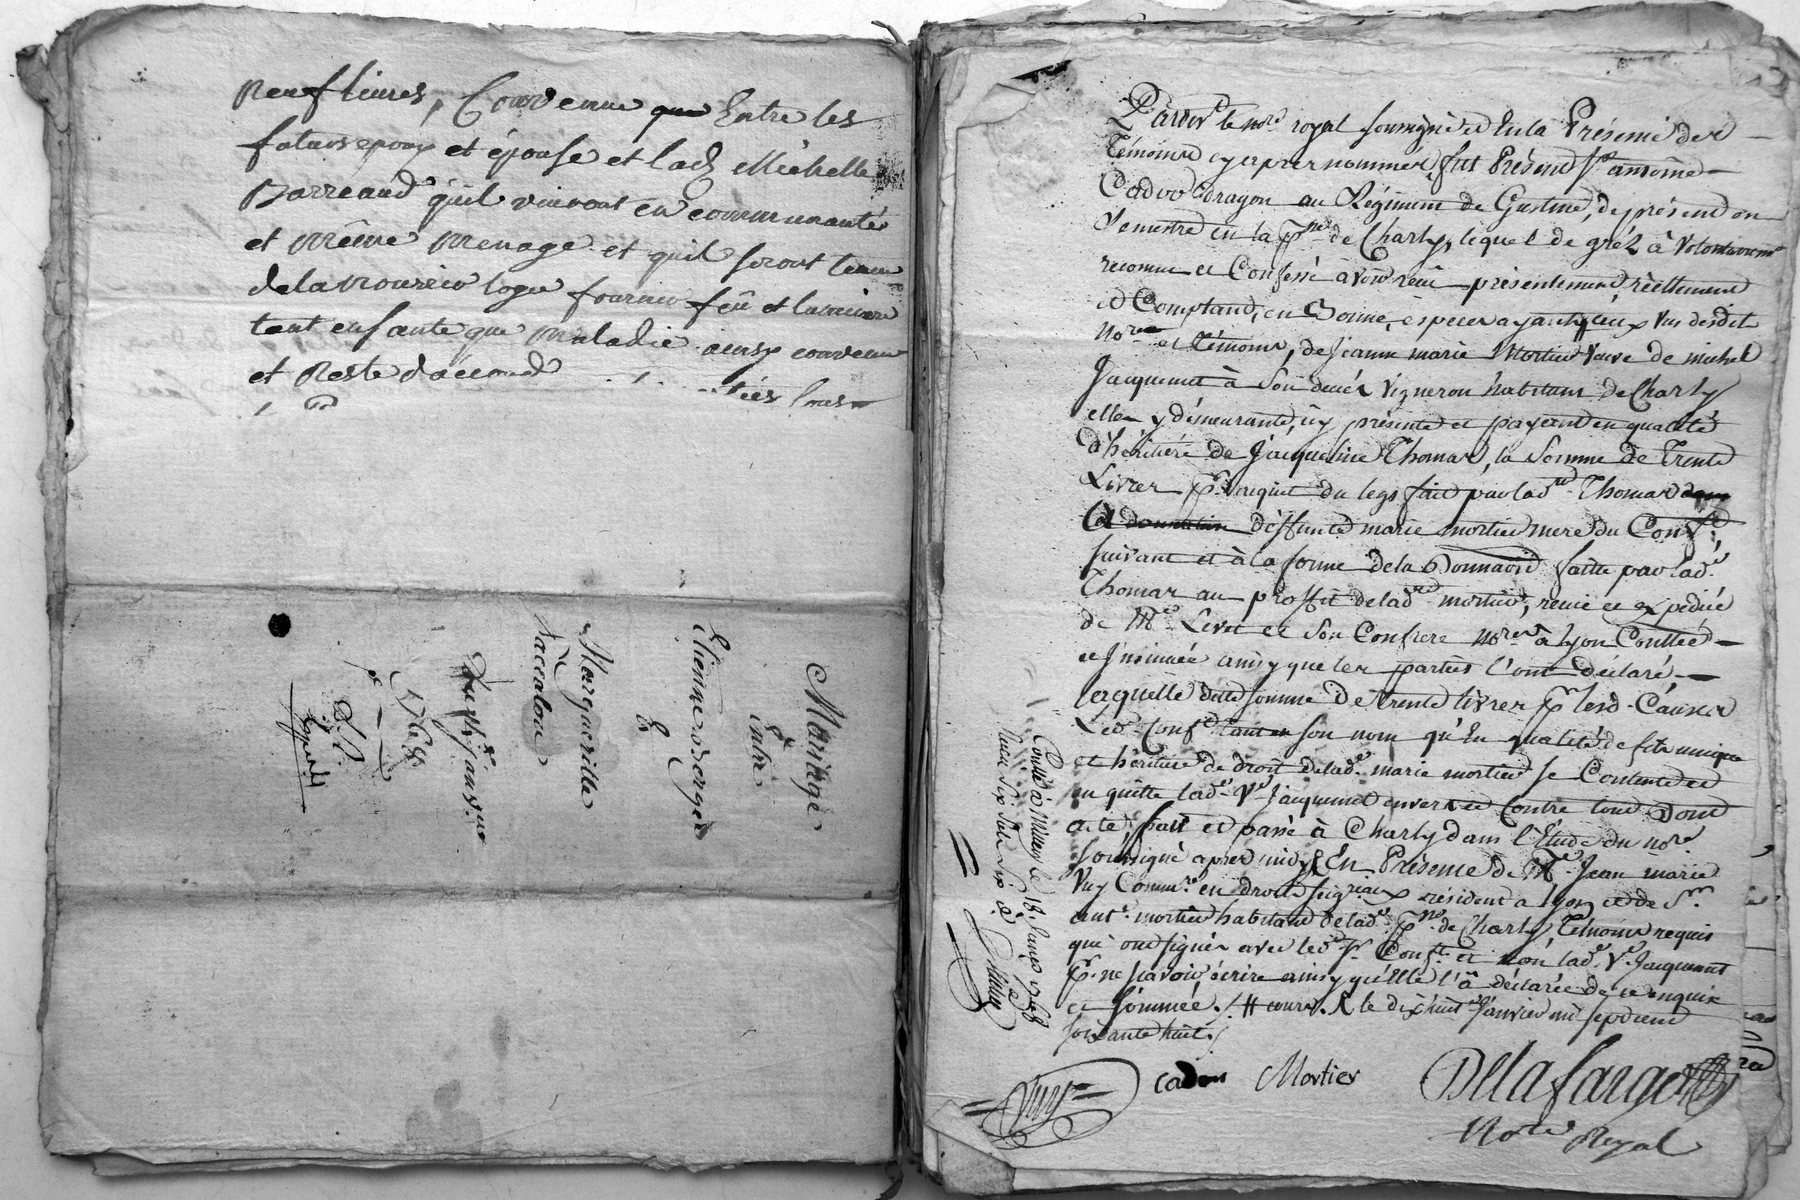 neuf livres, Convenu que Entre les
futurs epoux et épouse et lad. Michelle
Barreaud qu'il vivront en communauté
et même menage et quil seront tenu
de la nourrir loger fournir feu et lumiere
tant en sante que maladie ainsy convenu
et Reste d'accord
Mariage
Entre
Etienne Verger
&
Margueritte
Baccalon
Du 17e janvier
1768
Expedié
Pardt le nore royal soussigné et En la Présence des
témoins cy après nommés, fut Présent Sr. antoine
Cadoo dragon au Régiment de Gustine, de présent en
Semestre en la Psse de Charly, lequel de gré à volontairemt
reconnu et Confessé avoir reçu présentement réellement
et Comptant, en Bonne, espèces ayant cours vus desdits
nores et témoins, de Jeanne marie Mortier veuve de michel
Jacquemet à Son décès vigneron habitant de Charly
elle y demeurante, icy présente et payant en qualité
d'héritière de Jacqueline Thomas, la Somme de Trente
Livres pr. l'acquit du legs fait par lad. Thomas
à deffunte marie mortier mere du Confst.,
suivant et à la forme de la Donnaon faitte par lad.e
Thomas au proffit de lad. mortier, reçue et expédiée
de Me. Livet et Son Confrere nores à Lyon Conllée
et Insinuée ainsy que les parties l'ont déclaré
laquelle ditte somme de trente livres pr lesd. Causes
Led. Confst. tant en son nom qu'En qualité de fils unique
et héritier de droit de lad. marie mortier se Contente et
en quitte lad. Ve. Jacquemet envers et Contre tous Dont
acte, fait et passé à Charly dans l'Etude du nore
soussigné apres midy En Présence de Me. Jean marie
Vuy Commre. en droits seigneuriaux résident à Lyon et de Sr.
ant. mortier habitant de lad. Psse. de Charly Témoins requis
qui ont signés avec led. Sr Confst. et non lad. Ve. Jacquemet
pr. ne scavoir écrire ainsy qu'Elle l'a déclarée de ce enquise
et sommée. le dix huit Janvier mil sept cent
soixante huit.
Conllé à Millery le 18. Janvr 1768
Reçu
Vuy
cadou
Mortier
Delafargue
Nore Royal